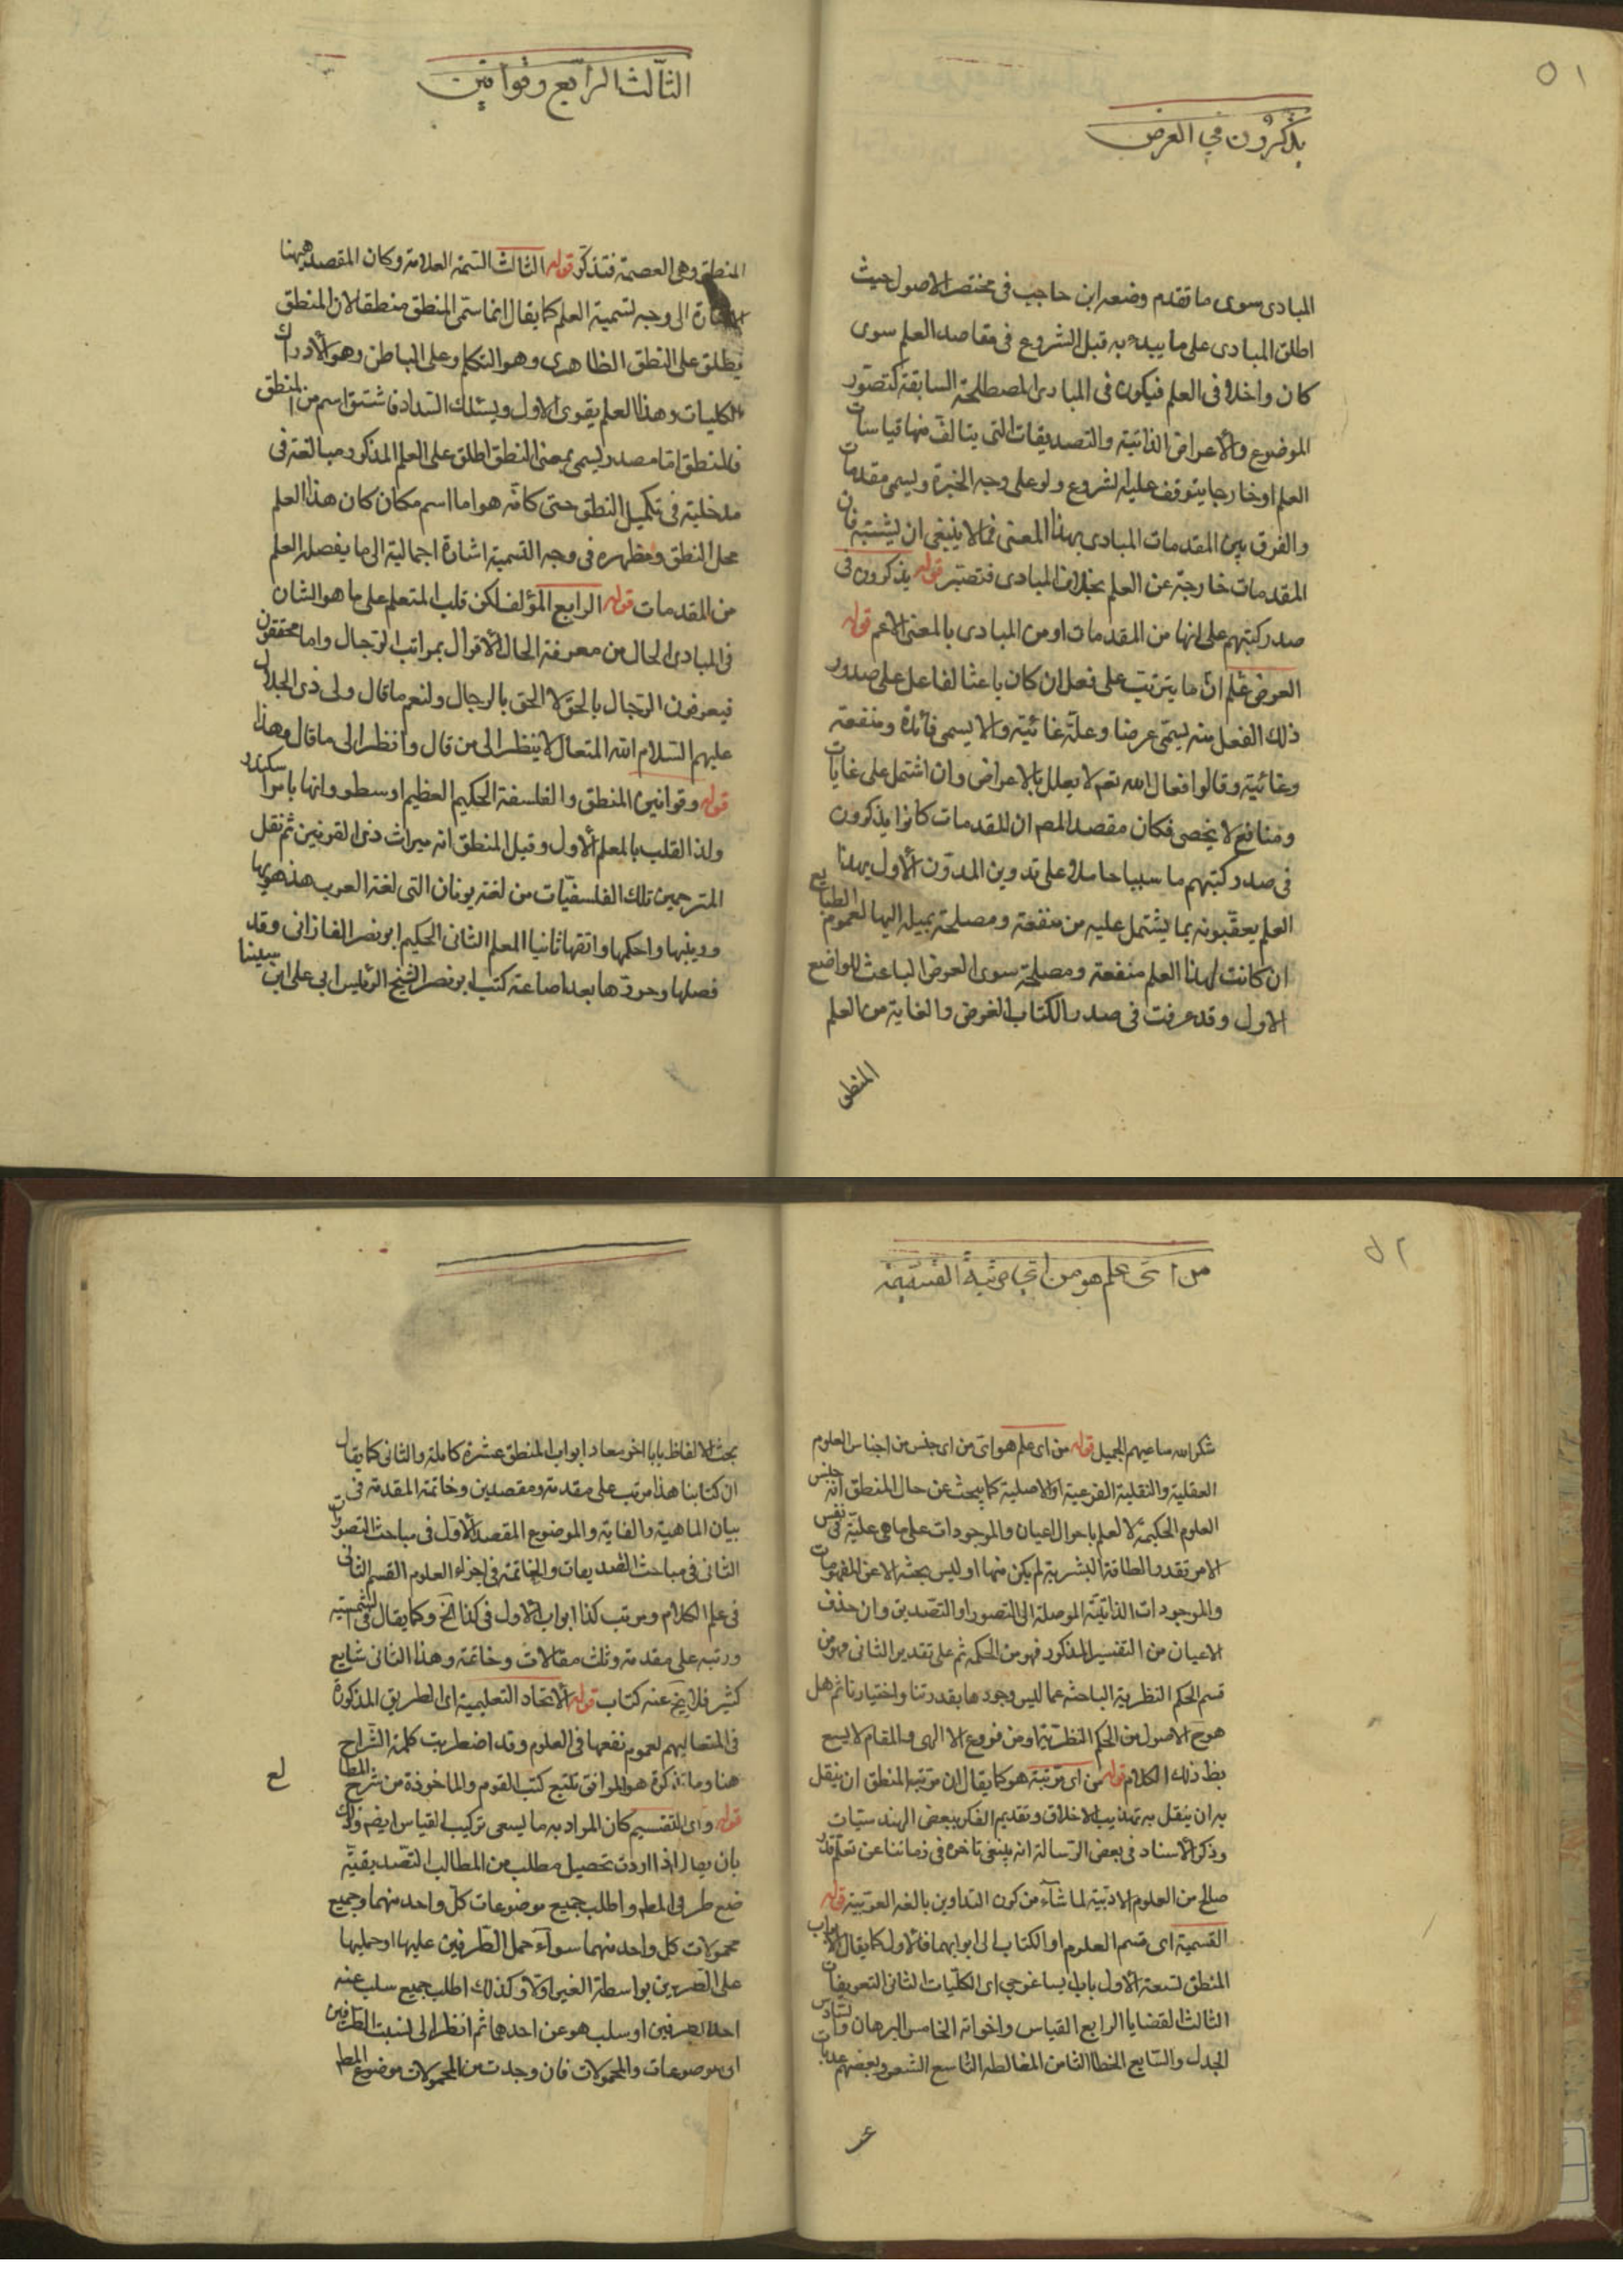 ٥١
يذكرون في الغرض
المبادى سوى ما تقدم وضعه ابن حاجب فى مختصر الاصول حيث
اطلق المبادى على ما يبدء به قبل الشروع فى مقاصد العلم سوى
كان داخلا فى العلم فيكون فى المبادى المصطلحة السابقة كتصور
الموضوع والأعراض الذاتية والتصديقات التى يتالف منها قياسات
العلم او خارجا يتوقف عليه الشروع ولو على وجه الخبرة ويسمى مقدمات
والفرق بين المقدمات المبادى بهذا المعنى فما لا ينبغى ان يشتبه فان
المقدمات خارجة عن العلم بخلاف المبادى فتصبر قوله يذكرون فى
صدر كتبهم على انها من المقدمات او من المبادى بالمعنى الاعم قوله
الغرض علم ان ما يترتب على فعل ان كان باعثا لفاعل على صدور
ذلك الفعل منه يسمى غرضا وعلة غائية والا يسمى فائدة ومنفعة
وغائية وقالوا افعال الله تعم لا يعلل بالاعراض وان اشتمل على غايات
ومنافع لا يحصى فكان مقصد المص ان المقدمات كانوا يذكرون
فى صدر كتبهم ما سببا حاملا على تدوين المدون الأول بهذا
العلم يعقبونه بما يشتمل عليه من منفعة ومصلحة يميل اليها لعموم الطبايع
ان كانت لهذا العلم منفعة ومصلحة سوى الغرض الباعث للواضع
الاول وقد عرفت فى صدر الكتاب الغرض والغاية من العلم
المنطق
الثالث الرابع وقوانين
المنطق وهى العصمة فتذكر قوله الثالث السمة العلامة وكان المقصد ههنا
الاشارة الى وجه تسمية العلم كما يقال انما سمى المنطق منطقا لان المنطق
يطلق على النطق الظاهرى وهو التكلم وعلى الباطن وهو الأدراك
الكليات وهذا العلم يقوى الاول ويسلك السداد فاشتق اسم من المنطق
فالمنطق اما مصدر ليسمى بمعنى النطق اطلق على العلم المذكور مبالغة فى
مدخلية فى تكميل النطق حتى كانه هو اما اسم مكان كان هذا العلم
محل النطق ومظهره فى وجه التسمية اشارة اجمالية الى ما يفصله العلم
من المقدمات قوله الرابع المؤلف لكن قلب المتعلم على ما هو الشان
فى المبادى الحال من معرفة الحال الاقوال بمراتب الرجال واما محققون
فيعرفون الرجال بالحق لا الحق بالرجال ولنعم ما قال ولى ذى الجلال
عليهم السلام الله المتعال لا ينظر الى من قال وانظر الى ما قال وهذا
قوله وقوانين المنطق والفلسفة الحكيم العظيم ارسطو وانها بامر اسكندر
ولذا القلب بالمعلم الأول وقيل المنطق انه ميراث ذى القرنين ثم نقل
المترجمين تلك الفلسفيات من لغة يونان التى لغة العرب هذبها
ورتبها واحكمها واتقها ثانيا المعلم الثانى الحكيم ابو نصر الفارابى وقد
فصلها وحررها بعد اضاعة كتب ابو نصر الشيخ الرئيس ابى على ابن سينا
٥٢
من اى علم هو من اى مرتبة القسمة
شكر الله ساعيهم الجميل قوله من اى علم هو اى من اى جنس من اجناس العلوم
العقلية والنقلية الفرعية او الاصلية كما يبحث عن حال المنطق انه جنس
العلوم الحكمية لا لعلم باحوال اعيان والموجودات على ما هى عليه فى نفس
الامر بقدر الطاقة البشرية لم يكن منها اوليس بحثه الا عن المفهومات
والموجودات الذاتية الموصلة الى التصور او التصديق وان حذف
الاعيان من التفسير المذكور فهو من الحكمة ثم على تقدير الثانى فهو من
قسم الحكم النظرية الباحثة عما ليس وجودها بقدرتنا واختيارنا ثم هل
هوح الاصول من الحكم النظرية او من فروع الا الهى والمقام لا يسع
بط ذلك الكلام قوله من اى مرتبة هو كما يقال ان مرتبة المنطق ان ينقل
به ان ينقل به تهذيب الاخلاق وتقديم الفكر ببعض الهندسيات
وذكر الأستاد فى بعض الرسالة انه ينبغى تاخره فى زماننا عن تعلم قدر
صالح من العلوم الادبية لما شاء من كون التداوين بالغة العربية قوله
القسمية اى قسم العلوم او الكتاب الى ابوابهما فالأول كما يقال ابواب
المنطق تسعة الاول باب ايساغوجى اى الكليات الثانى التعريفات
الثالث القضايا الرابع القياس واخواته الخامس البرهان والسادس
الجدل والسابع الخطا الثامن المغالطه التاسع الشعر وبعضهم عد باب
بحث الالفاظ بابا اخر معاد ابواب المنطق عشرة كاملة والثانى كما يقال
ان كتابنا هذا مرتب على مقدمة ومقصدين وخاتمة المقدمة فى
بيان الماهية والغاية والموضوع المقصد الأول فى مباحث التصورات
الثانى فى مباحث التصديقات والخاتمة فى اجزاء العلوم القسم الثانى
فى علم الكلام ومرتب كذا ابواب الاول فى كذا الخ وكما يقال فى الشمسية
ورتبه على مقدمة وثلث مقالات وخاتمة وهذا الثانى شايع
كثير فلا يخ عنه كتاب قوله الأنحاء التعليمية اى الطريق المذكورة
فى المتعاليهم لعموم نفعها فى العلوم وقد اضطربت كلمة الشراح
هنا وما نذكرة هو الموافق تلتبع كتب القوم والماخوذة من شرح المطا
لع
قوله واى التقسيم كان المراد به ما يسمى تركيب القياس ايضم وذلك
بان يقال اذا اردت تحصيل مطلب من المطالب التصديقية
ضع طرفى المطم واطلب جميع موضوعات كل واحد منهما وجميع
محمولات كل واحد منهما سواء حمل الطرفين عليها او حملها
على الطرفين بواسطة الغير اولا وكذلك اطلب جميع سلب عنه
احد الطرفين او سلب هو عن احدهما ثم انظر الى نسبت الطرفين
اى موضوعات والمحمولات فان وجدت من المحمولات موضوع المطم